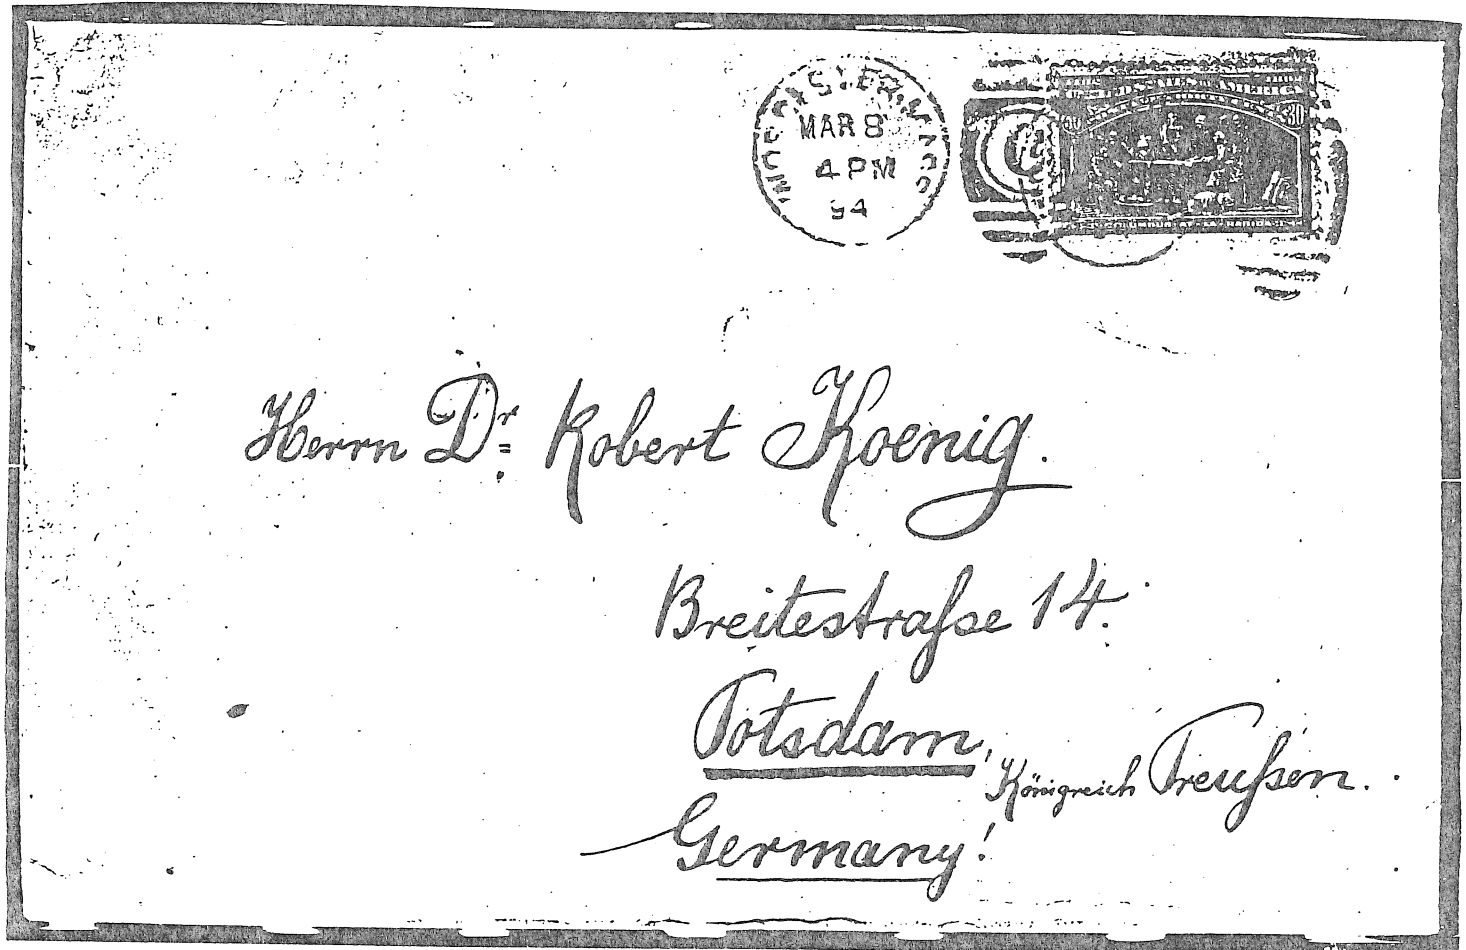 MAR 8
4 PM
94
30
Herrn Dr. Robert Koenig.
Breitestraſse 14.
Potsdam,
Königreich Preuſsen.
Germany!